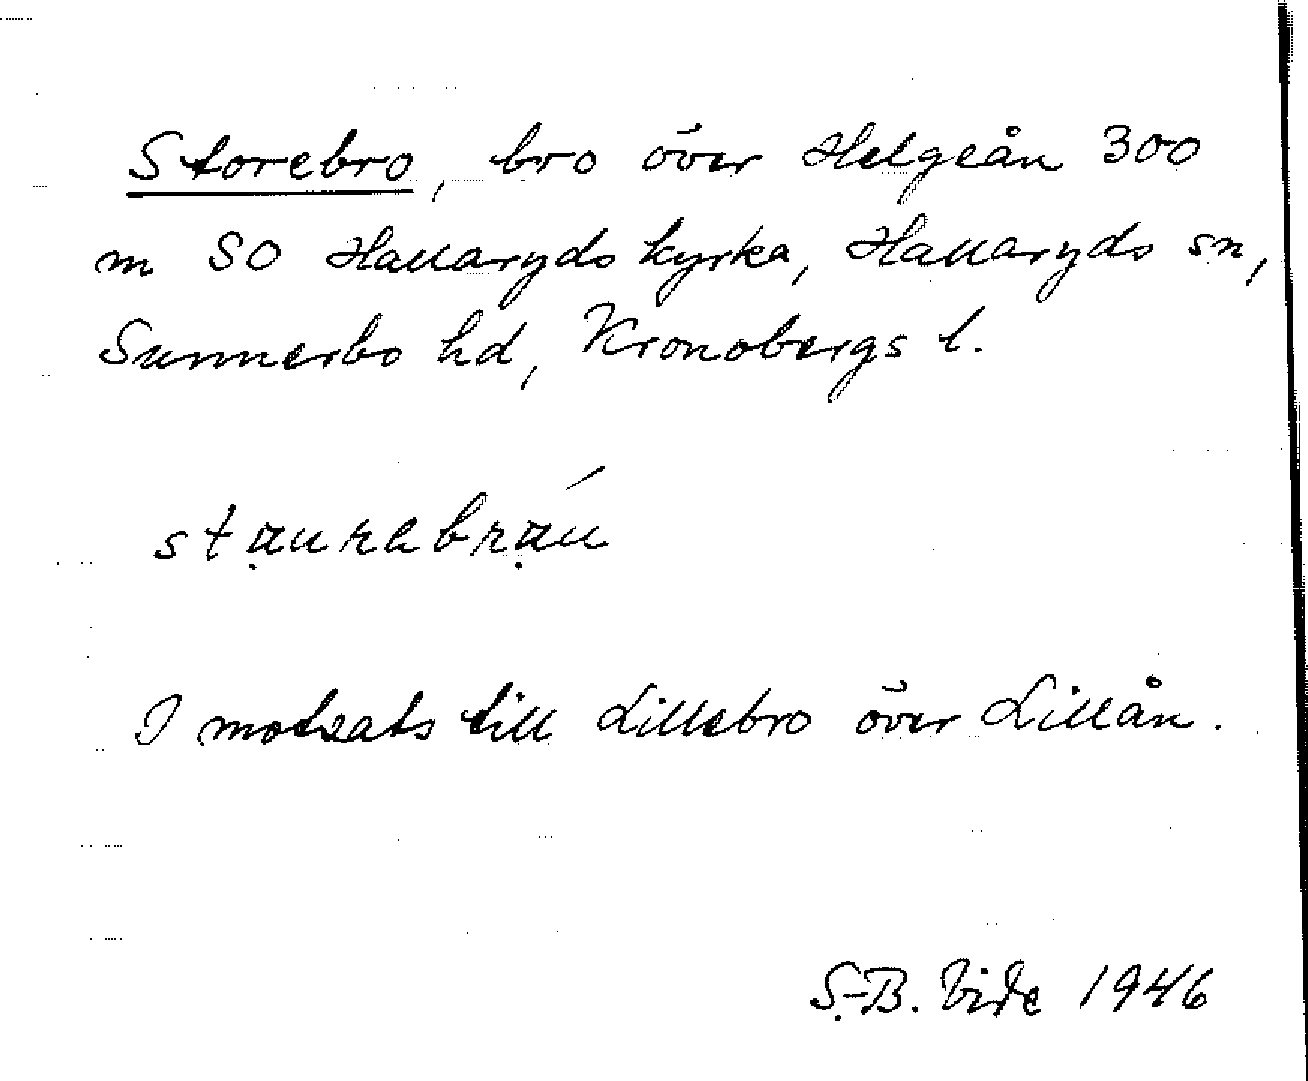 Storebro, bro över Helgeån 300
m SO Hallaryds kyrka, Hallaryds sn,
Sunnerbo hd, Kronobergs l.
sta̤urabra̤ú
I motsats till Lillebro över Lillån.
S.-B. Vide 1946